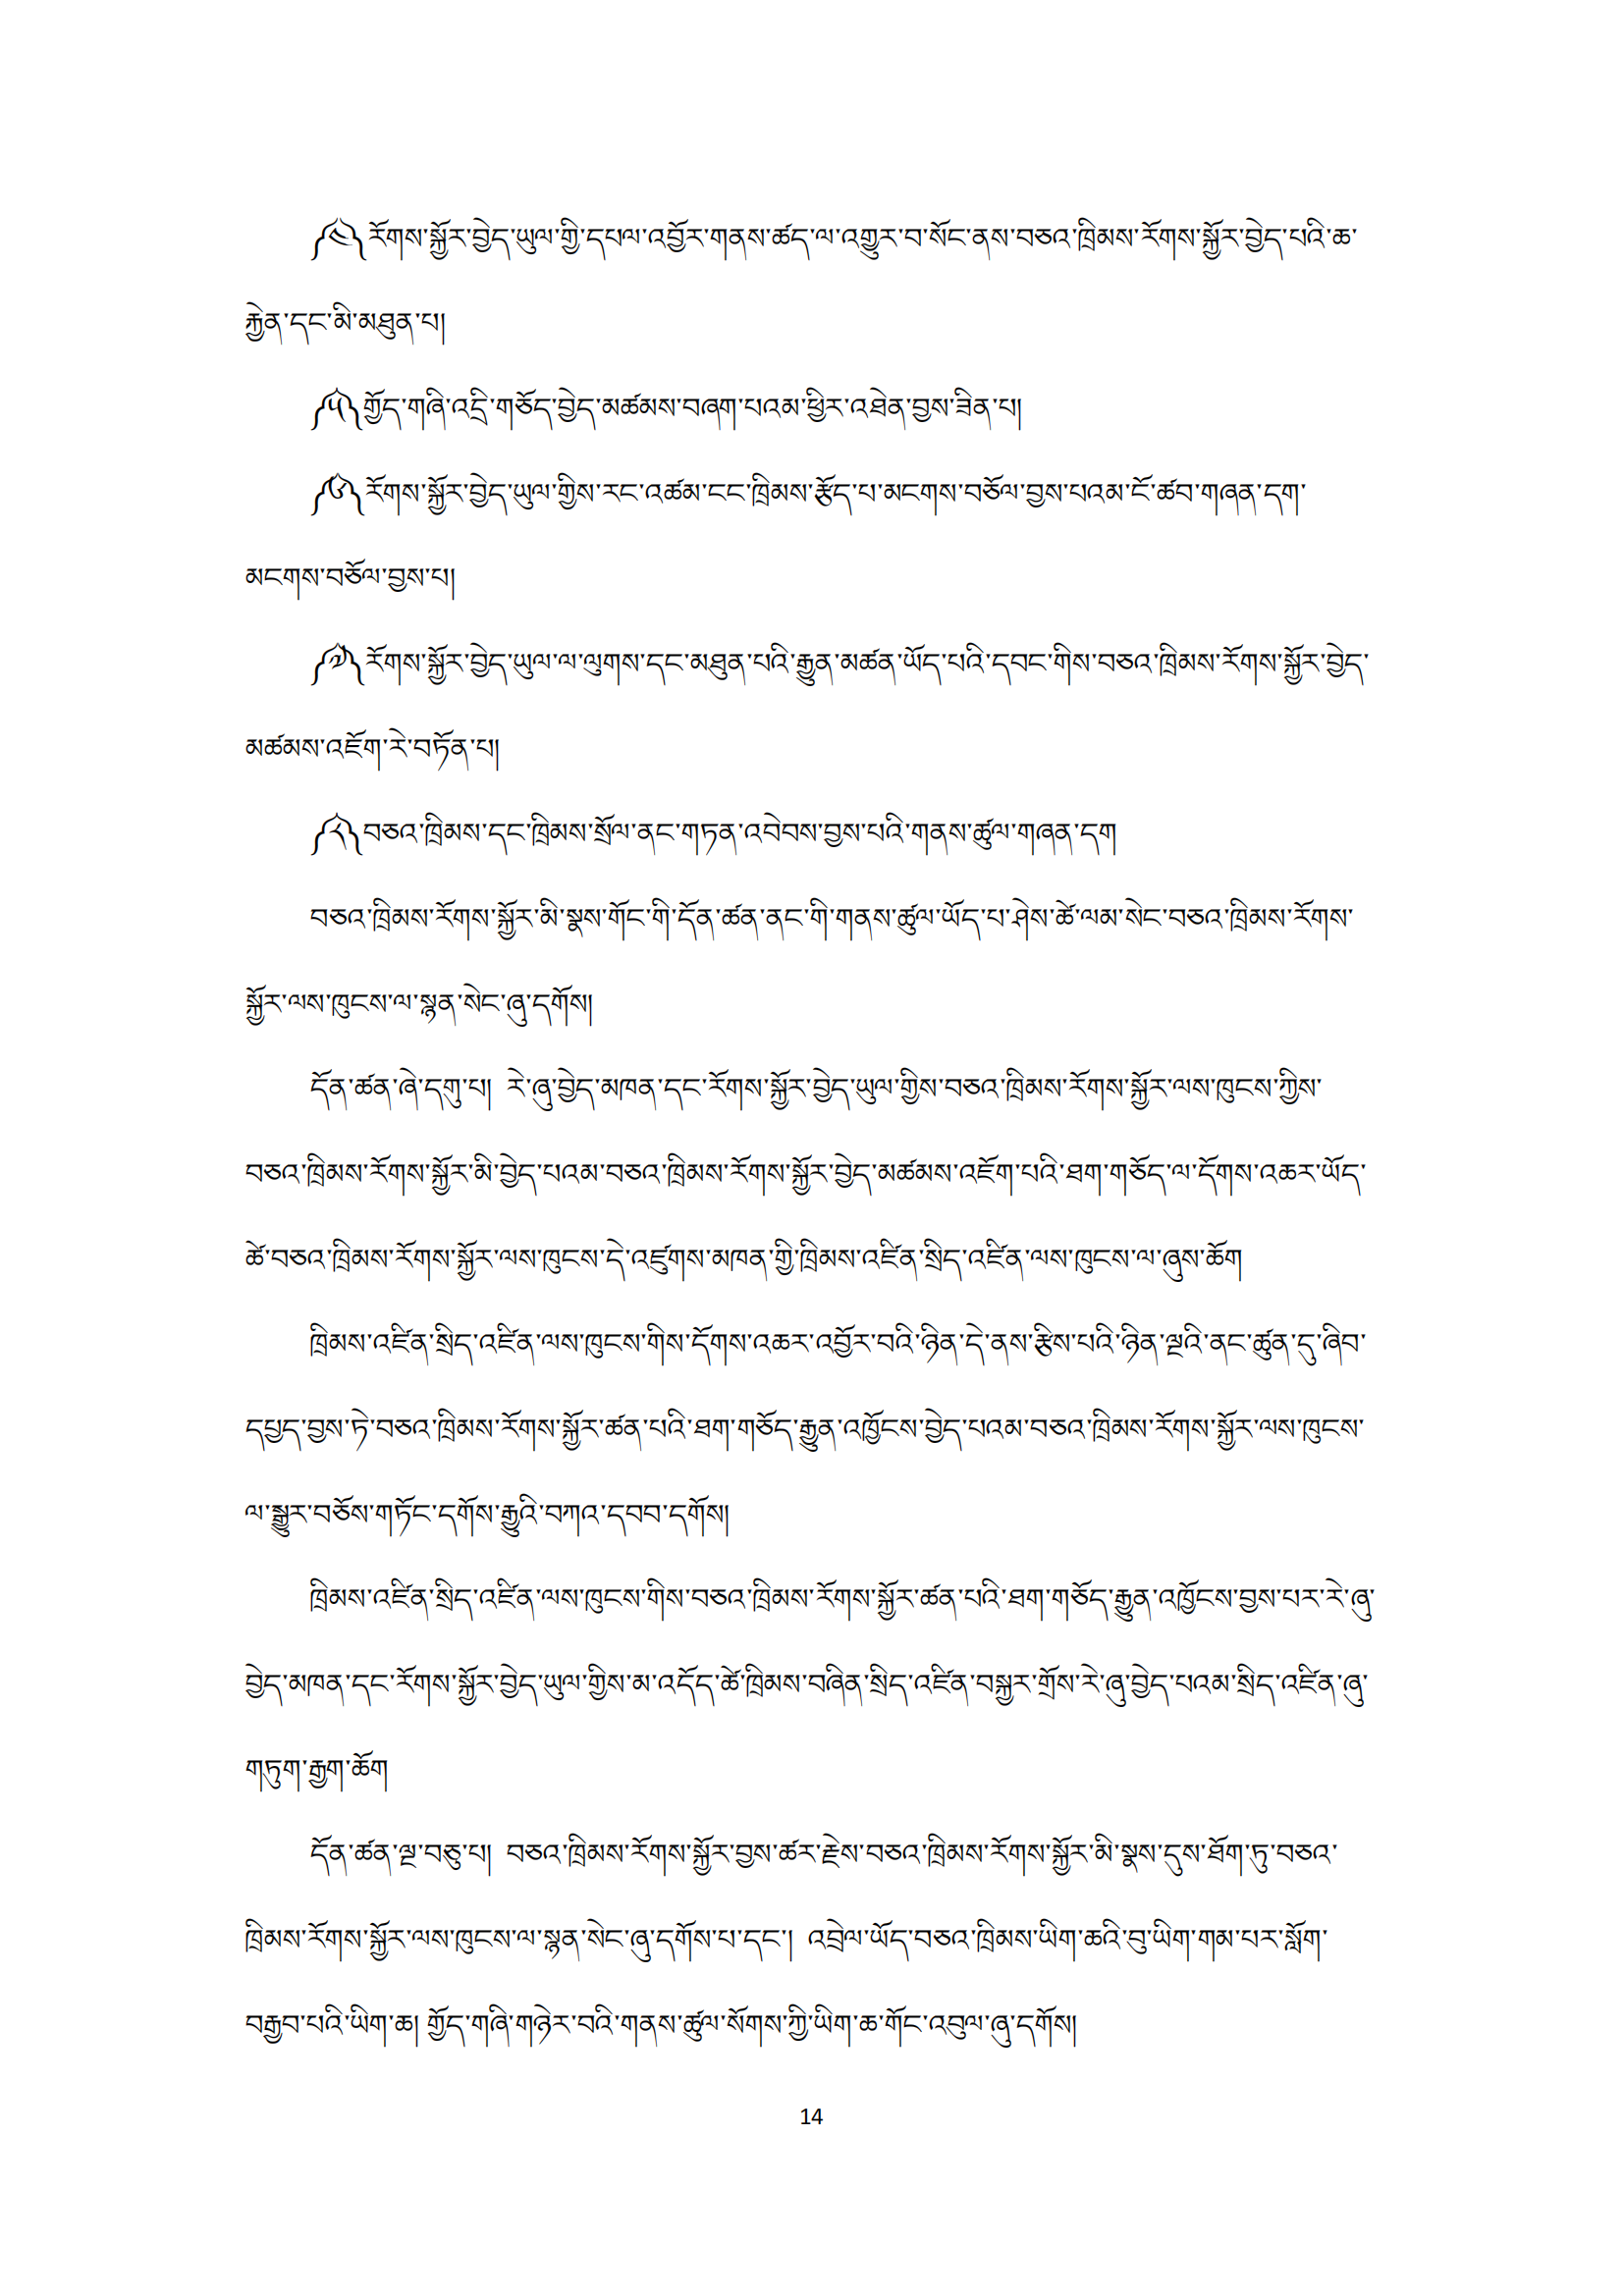 ༼༤༽རོགས་སྐྱོར་བྱེད་ཡུལ་གྱི་དཔལ་འབྱོར་གནས་ཚད་ལ་འགྱུར་བ་སོང་ནས་བཅའ་ཁྲིམས་རོགས་སྐྱོར་བྱེད་པའི་ཆ་
རྐྱེན་དང་མི་མཐུན་པ།
༼༥༽གྱོད་གཞི་འདྲི་གཅོད་བྱེད་མཚམས་བཞག་པའམ་ཕྱིར་འཐེན་བྱས་ཟིན་པ།
༼༦༽རོགས་སྐྱོར་བྱེད་ཡུལ་གྱིས་རང་འཚམ་ངང་ཁྲིམས་རྩོད་པ་མངགས་བཅོལ་བྱས་པའམ་ངོ་ཚབ་གཞན་དག་
མངགས་བཅོལ་བྱས་པ།
༼༧༽རོགས་སྐྱོར་བྱེད་ཡུལ་ལ་ལུགས་དང་མཐུན་པའི་རྒྱུན་མཚན་ཡོད་པའི་དབང་གིས་བཅའ་ཁྲིམས་རོགས་སྐྱོར་བྱེད་
མཚམས་འཇོག་རེ་བཏོན་པ།
༼༨༽བཅའ་ཁྲིམས་དང་ཁྲིམས་སྲོལ་ནང་གཏན་འབེབས་བྱས་པའི་གནས་ཚུལ་གཞན་དག
བཅའ་ཁྲིམས་རོགས་སྐྱོར་མི་སྣས་གོང་གི་དོན་ཚན་ནང་གི་གནས་ཚུལ་ཡོད་པ་ཤེས་ཚེ་ལམ་སེང་བཅའ་ཁྲིམས་རོགས་
སྐྱོར་ལས་ཁུངས་ལ་སྙན་སེང་ཞུ་དགོས།
དོན་ཚན་ཞེ་དགུ་པ། རེ་ཞུ་བྱེད་མཁན་དང་རོགས་སྐྱོར་བྱེད་ཡུལ་གྱིས་བཅའ་ཁྲིམས་རོགས་སྐྱོར་ལས་ཁུངས་ཀྱིས་
བཅའ་ཁྲིམས་རོགས་སྐྱོར་མི་བྱེད་པའམ་བཅའ་ཁྲིམས་རོགས་སྐྱོར་བྱེད་མཚམས་འཇོག་པའི་ཐག་གཅོད་ལ་དོགས་འཆར་ཡོད་
ཚེ་བཅའ་ཁྲིམས་རོགས་སྐྱོར་ལས་ཁུངས་དེ་འཛུགས་མཁན་གྱི་ཁྲིམས་འཛིན་སྲིད་འཛིན་ལས་ཁུངས་ལ་ཞུས་ཆོག
ཁྲིམས་འཛིན་སྲིད་འཛིན་ལས་ཁུངས་གིས་དོགས་འཆར་འབྱོར་བའི་ཉིན་དེ་ནས་རྩིས་པའི་ཉིན་ལྔའི་ནང་ཚུན་དུ་ཞིབ་
དཔྱད་བྱས་ཏེ་བཅའ་ཁྲིམས་རོགས་སྐྱོར་ཚན་པའི་ཐག་གཅོད་རྒྱུན་འཁྱོངས་བྱེད་པའམ་བཅའ་ཁྲིམས་རོགས་སྐྱོར་ལས་ཁུངས་
ལ་སྒྱུར་བཅོས་གཏོང་དགོས་རྒྱུའི་བཀའ་དབབ་དགོས།
ཁྲིམས་འཛིན་སྲིད་འཛིན་ལས་ཁུངས་གིས་བཅའ་ཁྲིམས་རོགས་སྐྱོར་ཚན་པའི་ཐག་གཅོད་རྒྱུན་འཁྱོངས་བྱས་པར་རེ་ཞུ་
བྱེད་མཁན་དང་རོགས་སྐྱོར་བྱེད་ཡུལ་གྱིས་མ་འདོད་ཚེ་ཁྲིམས་བཞིན་སྲིད་འཛིན་བསྐྱར་གྲོས་རེ་ཞུ་བྱེད་པའམ་སྲིད་འཛིན་ཞུ་
གཏུག་རྒྱག་ཆོག
དོན་ཚན་ལྔ་བཅུ་པ། བཅའ་ཁྲིམས་རོགས་སྐྱོར་བྱས་ཚར་རྗེས་བཅའ་ཁྲིམས་རོགས་སྐྱོར་མི་སྣས་དུས་ཐོག་ཏུ་བཅའ་
ཁྲིམས་རོགས་སྐྱོར་ལས་ཁུངས་ལ་སྙན་སེང་ཞུ་དགོས་པ་དང་། འབྲེལ་ཡོད་བཅའ་ཁྲིམས་ཡིག་ཆའི་བུ་ཡིག་གམ་པར་སློག་
བརྒྱབ་པའི་ཡིག་ཆ། གྱོད་གཞི་གཉེར་བའི་གནས་ཚུལ་སོགས་ཀྱི་ཡིག་ཆ་གོང་འབུལ་ཞུ་དགོས།
14